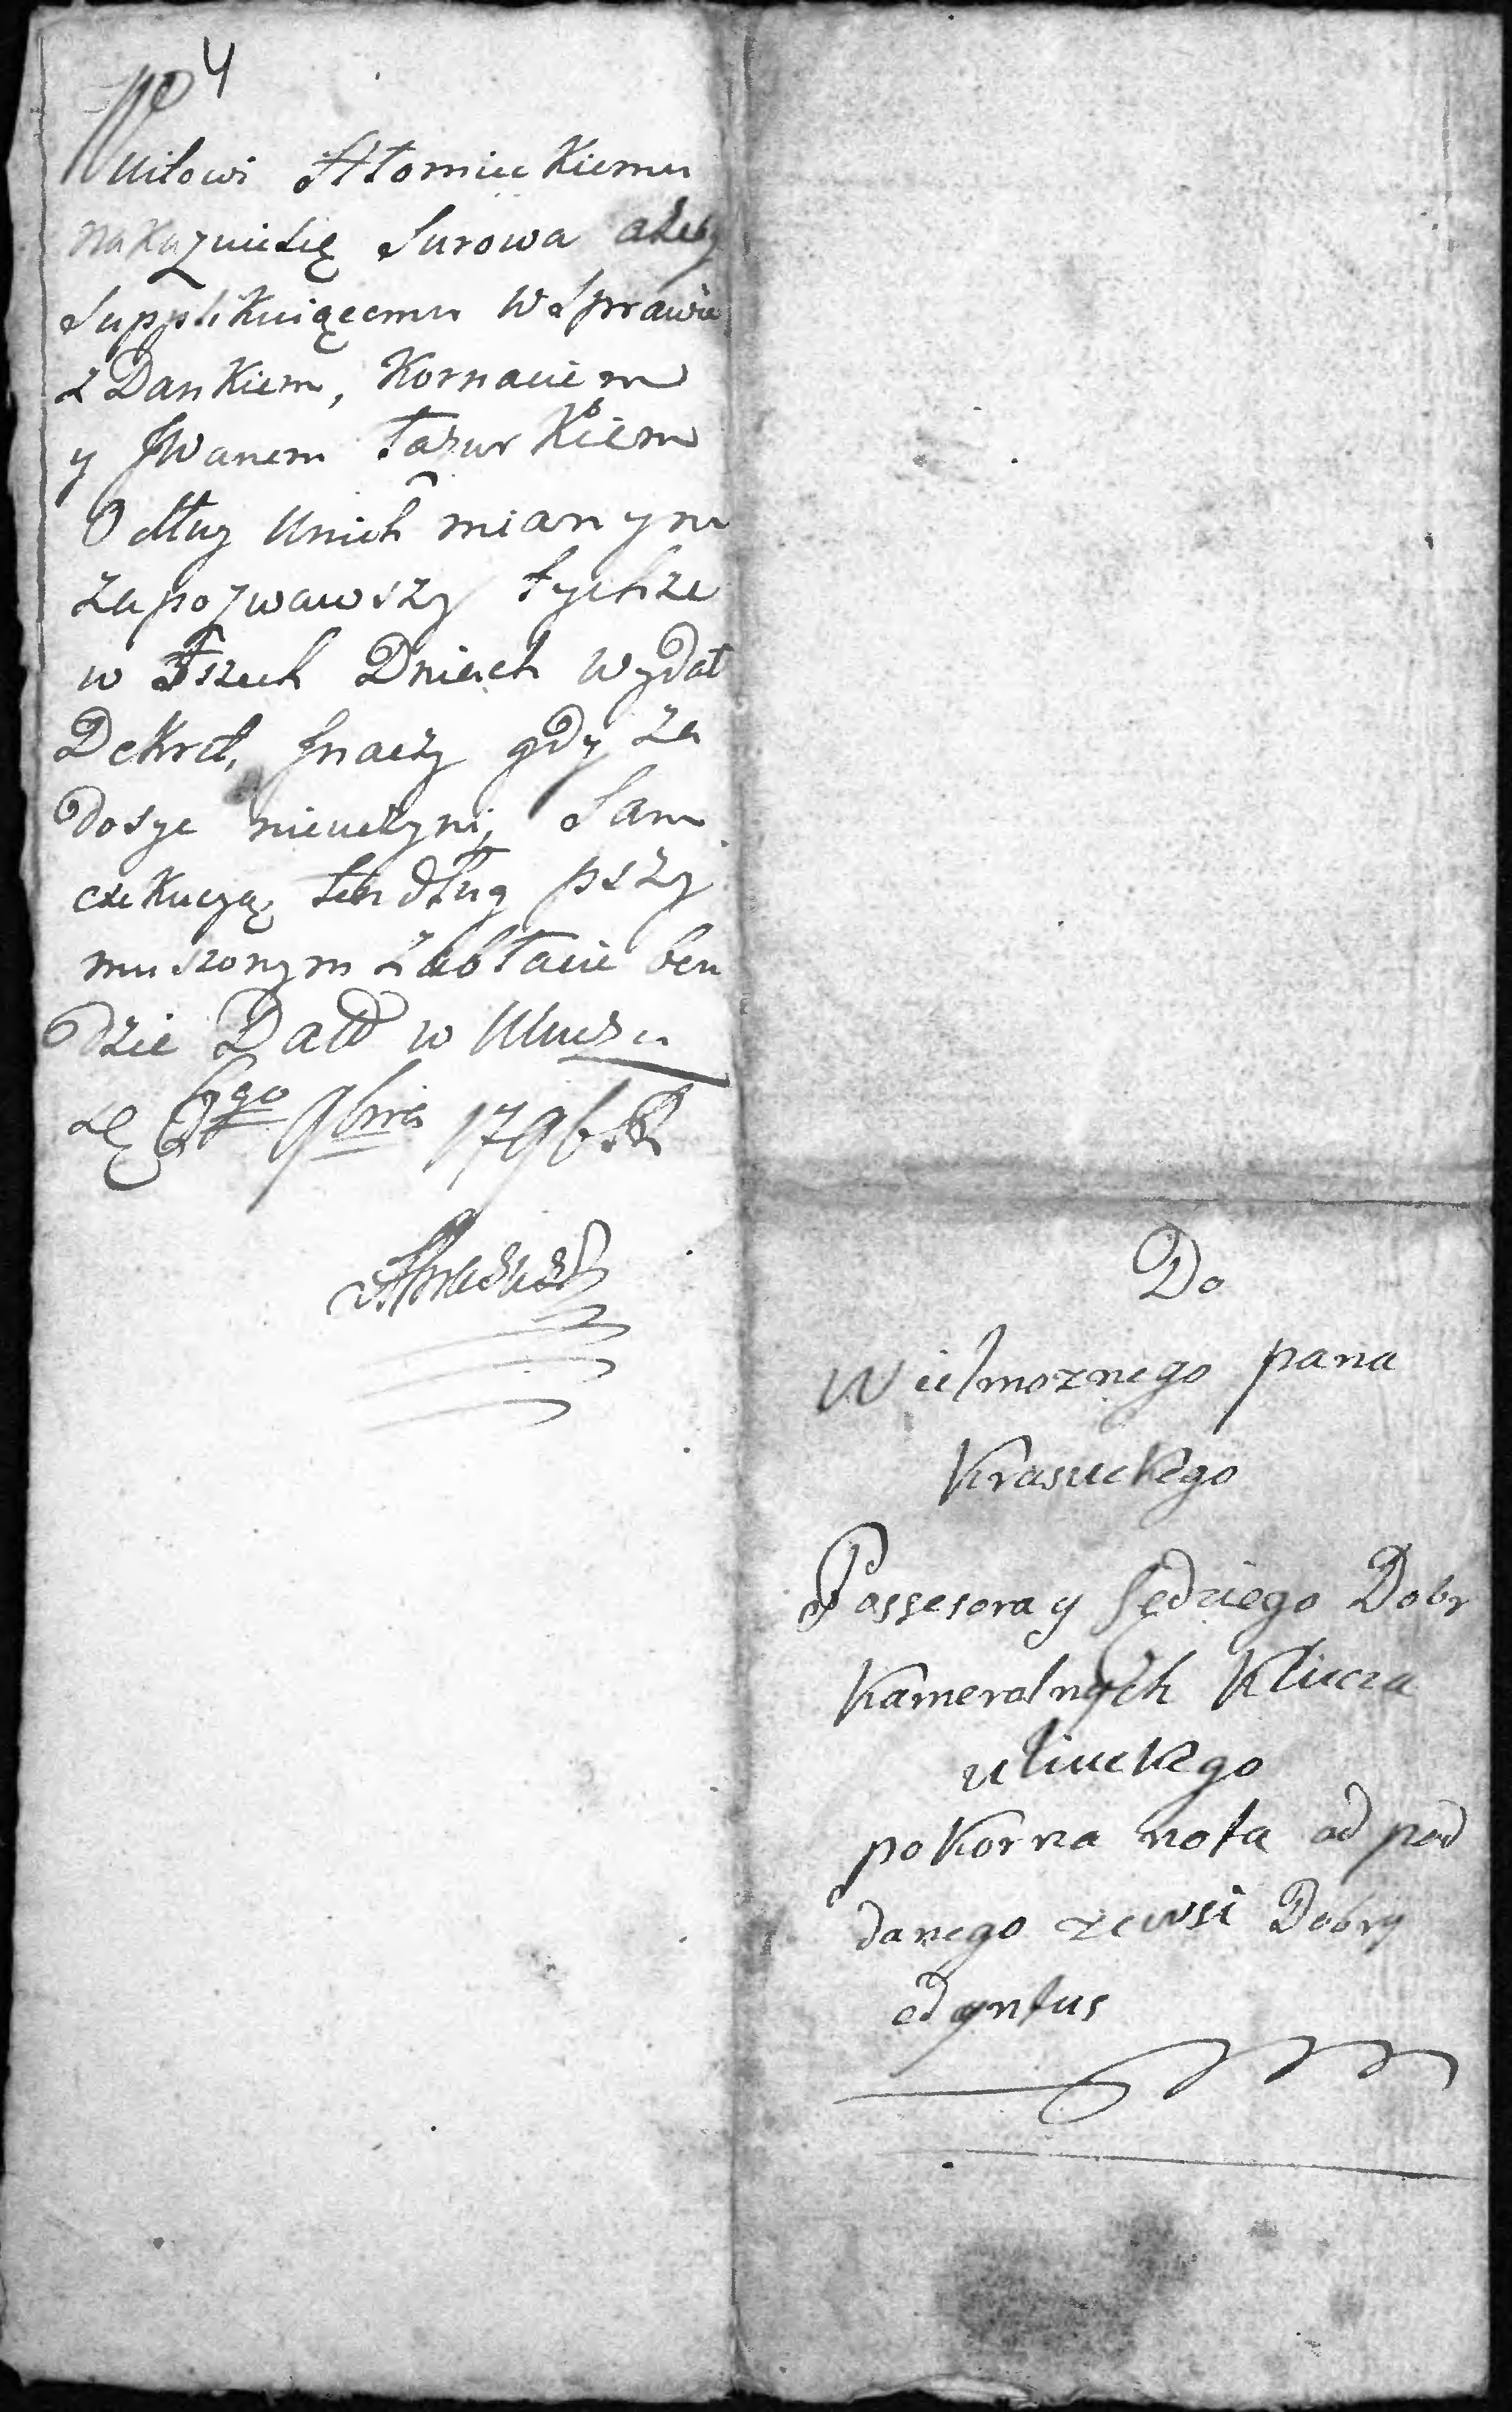 4
Wuitowi Hłomieckiemu
nakazuiesię Surowa ażeby
Supplikuiącemu w Sprawie
z Dankiem, Kornaciem
y Jwanem Łazurkiem
O dług Unich mianym
zapozwawszy tychże
w Trzech Dniach wydał
Dekret, Jnaczy gdy za
dosyc nieuczyni, Sam
exekucyą ten dług pszy
muszonym zabłacic ben
dzie Datt w Uluczu
9bris 1796
Do
Wielmoznego pana
Krasuckego
Possesora y Sędziego Dobr
Kameralnych Klucza
uliuckego
pokorna nota od pod
danego zewsi Dobry
ad yntus